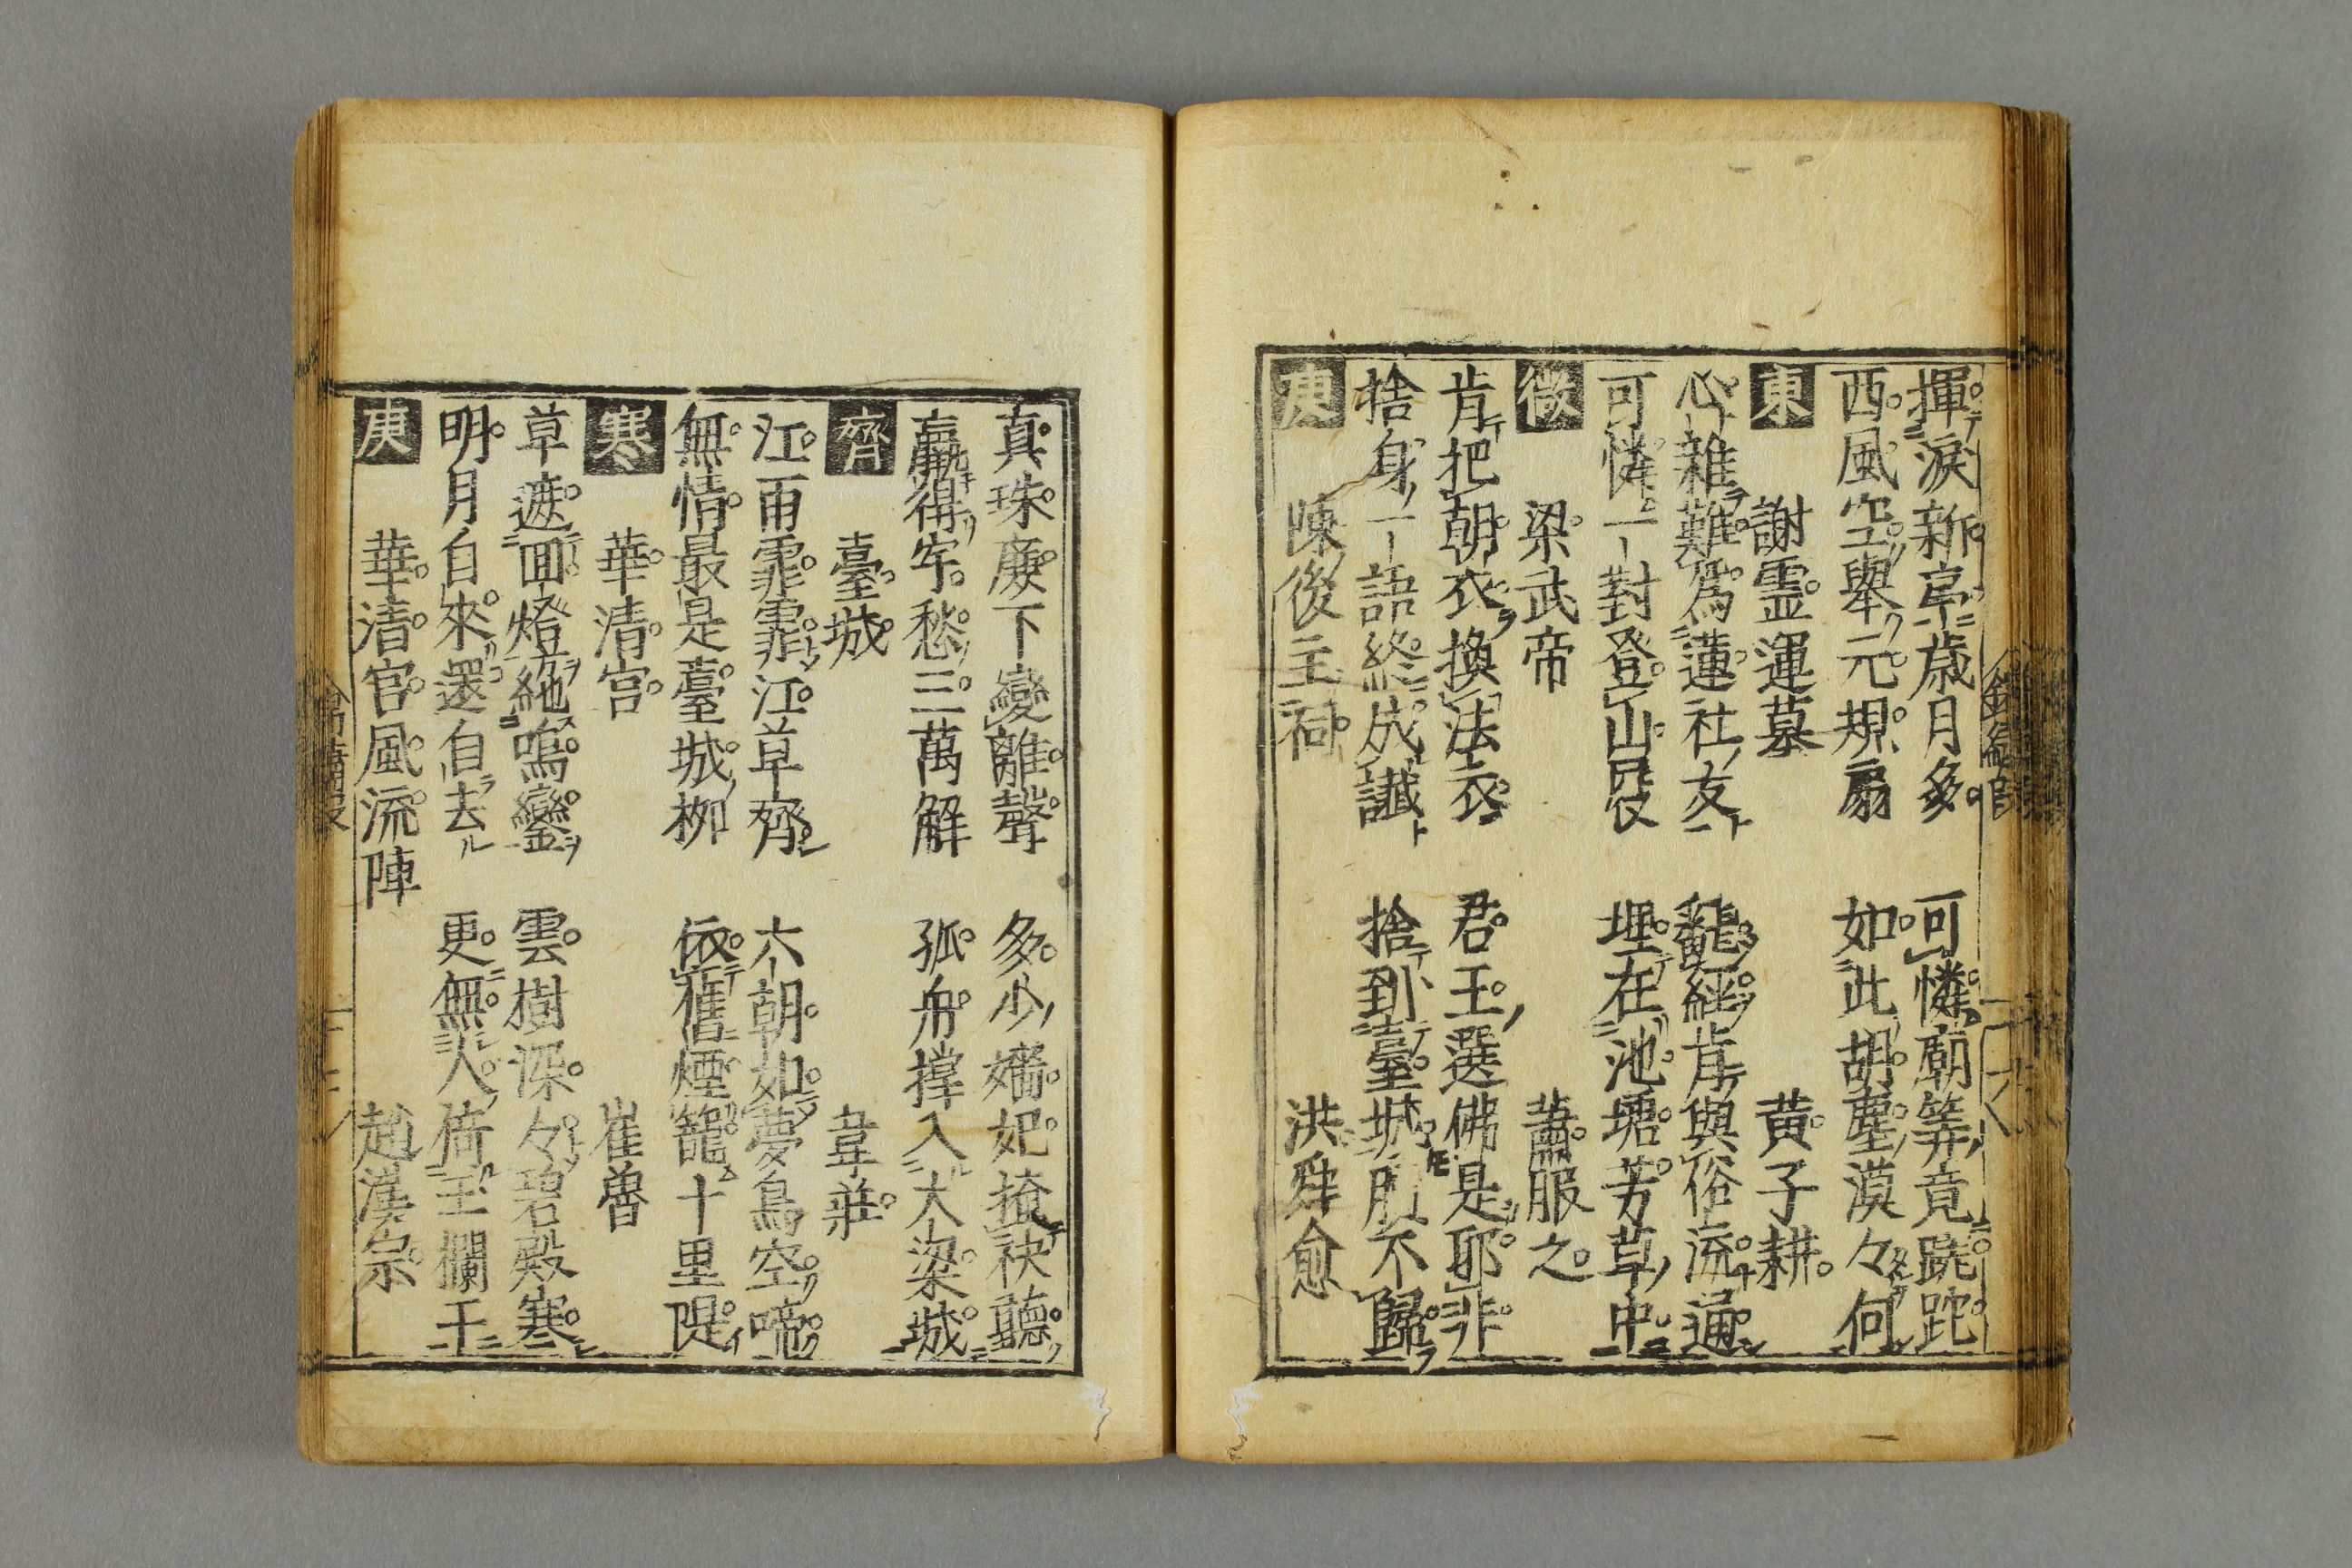 揮淚新亭歳月多　可憐廟筭竟蹉跎
西風空舉元規扇　如此胡塵漠々何
東　謝霊運墓　黃子耕
心雜難爲蓮社友　飜經肯與俗流通
可憐一對登山屐　埋在池塘芳草中
微　梁武帝　蕭服之
肯把朝衣換法衣　君王選佛是耶非
捨身一語終成讖　捨到臺城不歸
庚　陳後主祠　洪舜愈
真珠廉下變離聲　多少嬙妃掩袂聽
贏得牢愁三萬解　孤舟撑入大梁城
齊　臺城　韋莊
江雨霏霏江草齊　六朝如夢鳥空啼
無情最是臺城柳　依舊煙籠十里隄
寒　華清宮　崔魯
草遮回燈絶鳴鑾　雲樹深々碧殿寒
明月自來還自去　更無人倚玉欄干
庚　華清宮風流陣　趙漢宗